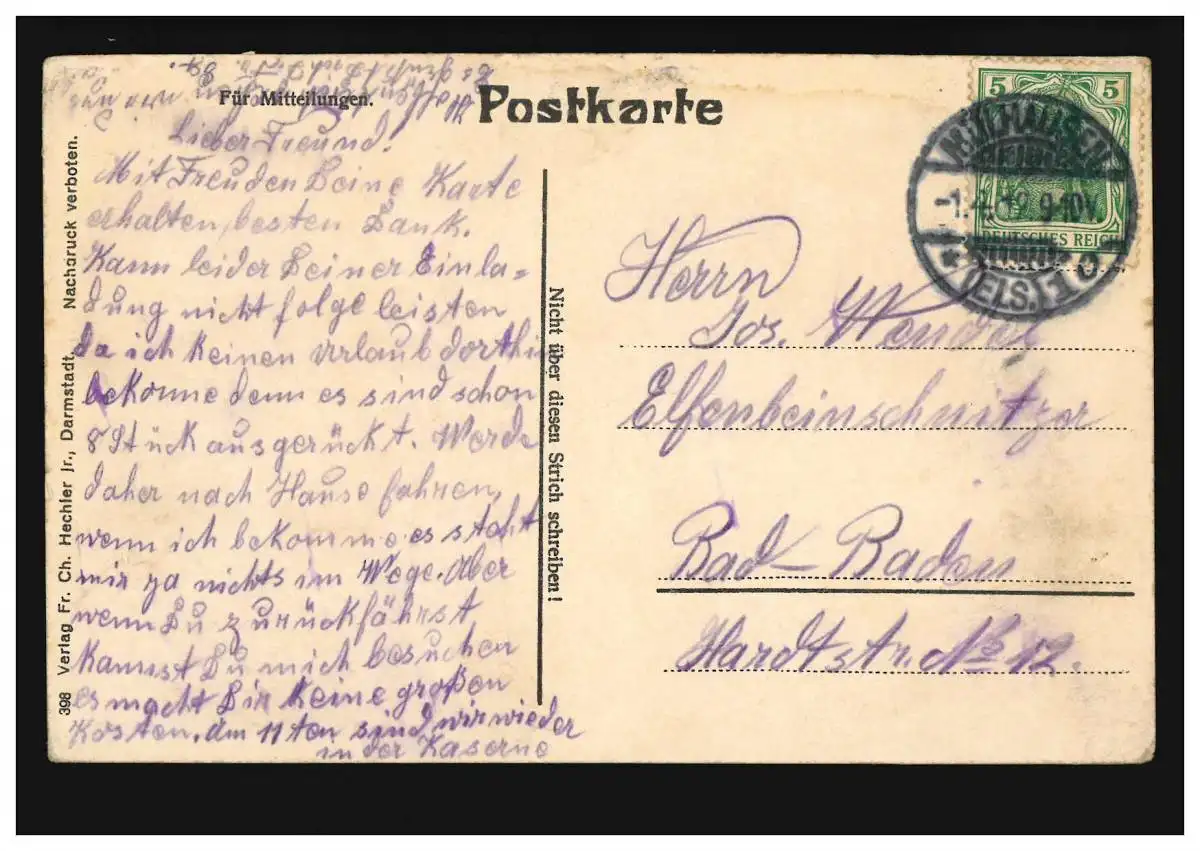 Für Mitteilungen.
Postkarte
Lieber Freund!
Mit Freuden Deine Karte
erhalten, besten Dank.
Kann leider Deiner Einla=
dung nicht folge leisten
da ich keinen Urlaub dorthin
bekomme denn es sind schon
8 Stück ausgerückt. Werde
daher nach Hause fahren,
wenn ich bekomme es steht
mir ja nichts im Wege. Aber
wenn Du zurückfährst
kannst Du mich besuchen
es macht Dir keine großen
Kosten. Am 11ten sind wir wieder
in der Kaserne
398 Verlag Fr. Ch. Hechler Jr., Darmstadt. Nachdruck verboten.
Nicht über diesen Strich schreiben!
5 5
DEUTSCHES REICH
MÜLHAUSEN
9-10V.
(ELS.)
Herrn
Jos. Wendel
Elfenbeinschnitzer
Bad-Baden
Hardtstr. No 12.